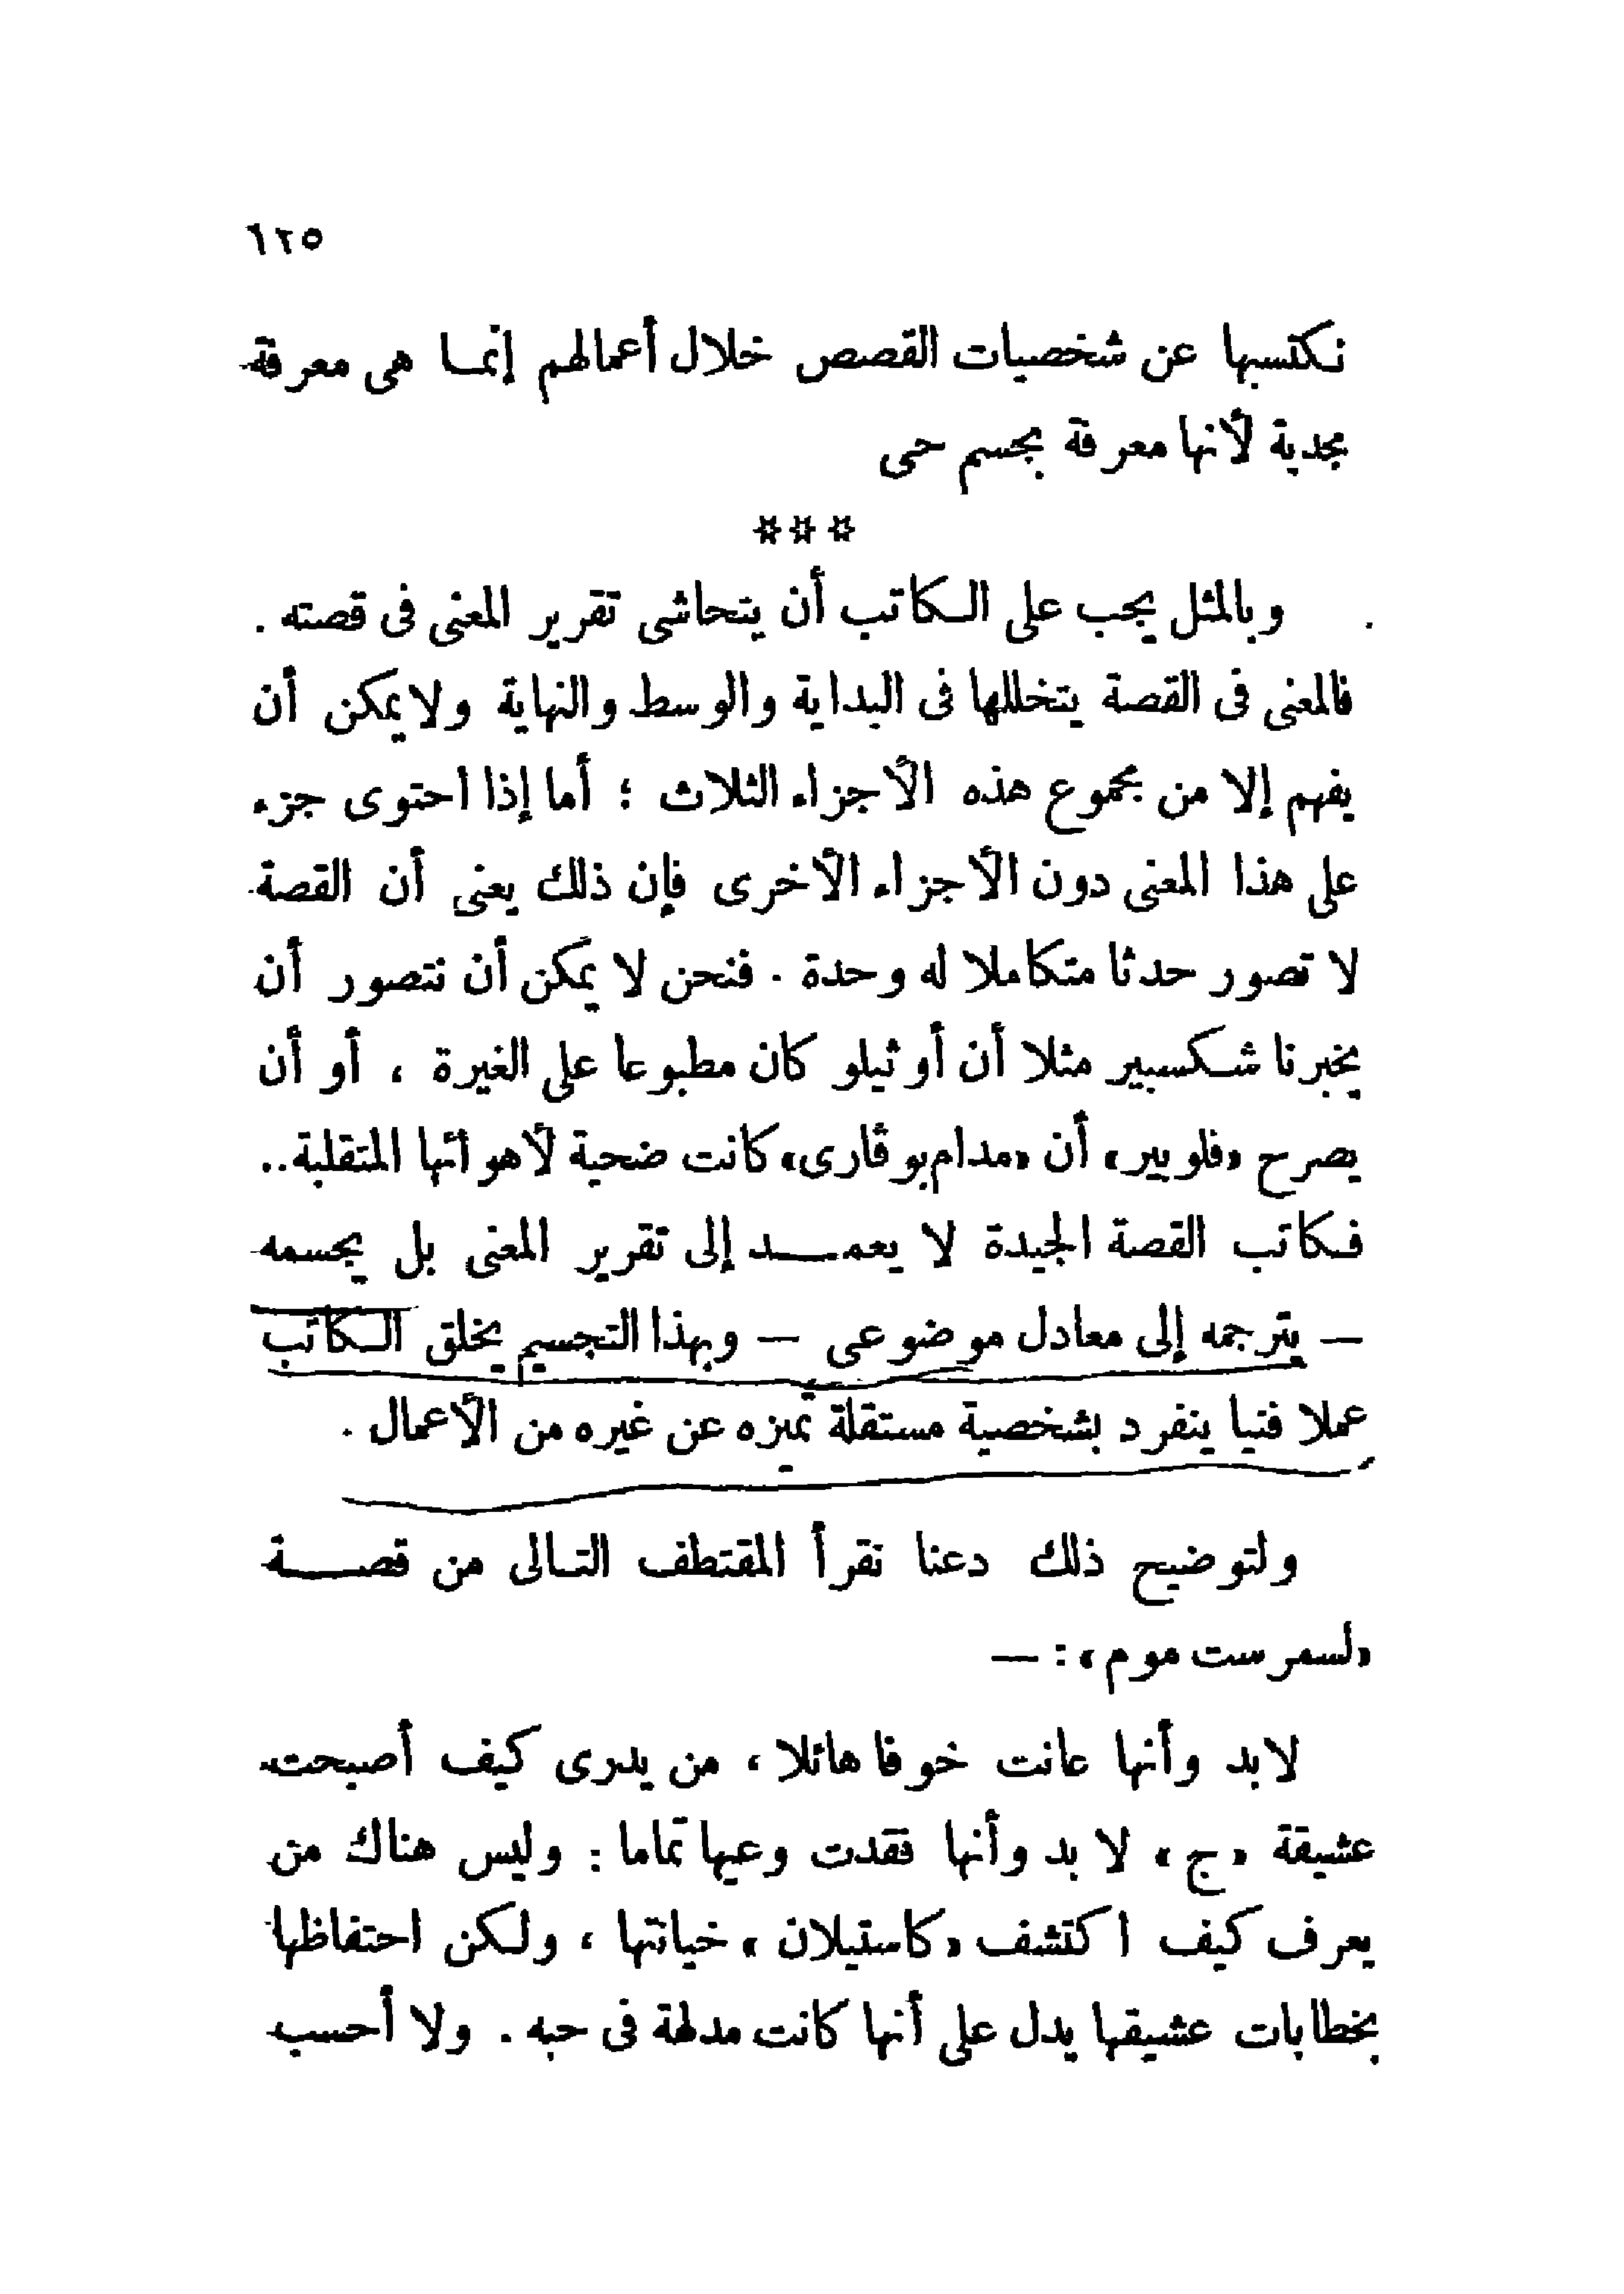 ١٢٥
نكتسبها عن شخصيات القصص خلال أعمالهم إنما هى معرفة
مجدية لأنها معرفة بجسم حى
***
وبالمثل يجب على الكاتب أن يتحاشى تقرير المعنى فى قصته .
فالمعنى فى القصة يتخللها فى البداية والوسط والنهاية ولا يمكن أن
يفهم إلا من مجموع هذه الأجزاء الثلاث ؛ أما إذا احتوى جزء
على هذا المعنى دون الأجزاء الأخرى فإن ذلك يعنى أن القصة
لا تصور حدثا متكاملا له وحدة . فنحن لا يمكن أن نتصور أن
يخبرنا شكسبير مثلا أن أوثيلو كان مطبوعا على الغيرة ، أو أن
يصرح «فلوبير» أن «مدام بوڤارى» كانت ضحية لأهوائها المتقلبة..
فكاتب القصة الجيدة لا يعمد إلى تقرير المعنى بل يجسمه
— يترجمه إلى معادل موضوعى — وبهذا التجسيم يخلق الكاتب
عملا فنيا ينفرد بشخصية مستقلة تميزه عن غيره من الأعمال .
ولتوضيح ذلك دعنا نقرأ المقتطف التالى من قصة
«لسمرست موم» : —
لابد وأنها عانت خوفا هائلا ، من يدرى كيف أصبحت
عشيقة «ج» لا بد وأنها فقدت وعيها تماما : وليس هناك من
يعرف كيف اكتشف «كاستيلان» خيانتها ، ولكن احتفاظها
بخطابات عشيقها يدل على أنها كانت مدلهة فى حبه . ولا أحسب